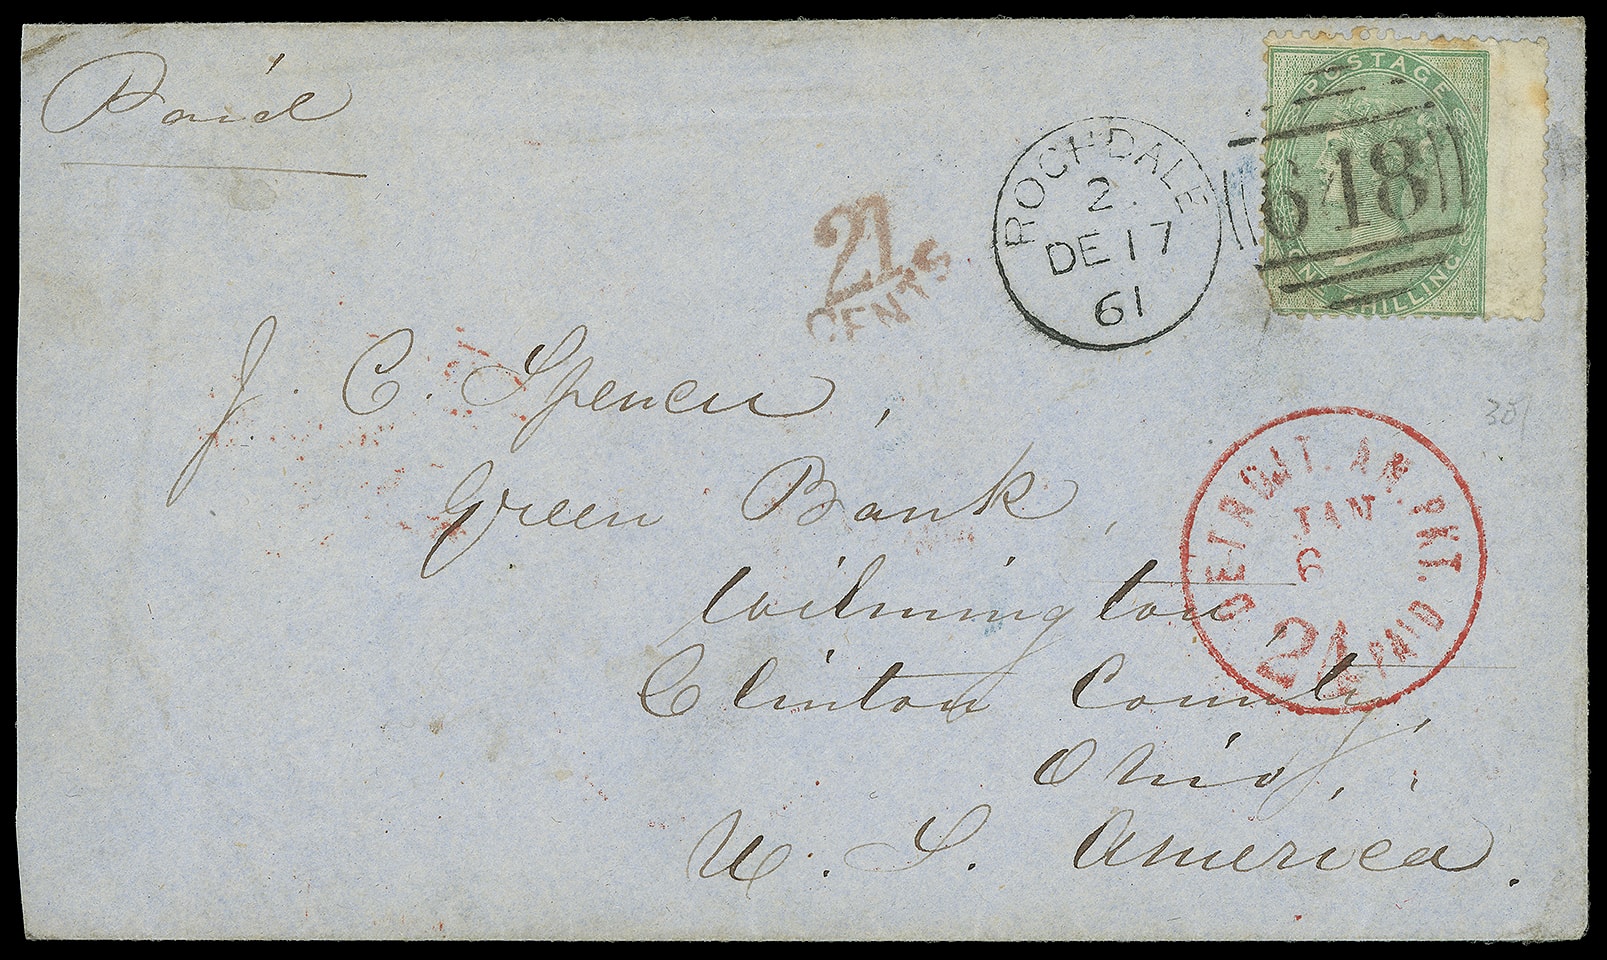 Paid
POSTAGE
ONE SHILLING
648
ROCHDALE
2.
DE 17
61
21
CENTS
J. C. Spencer,
Green Bank,
Wilmington,
Clinton County,
Ohio,
U. S. America.
DETROIT. AM. PKT. PAID
JAN
6
21